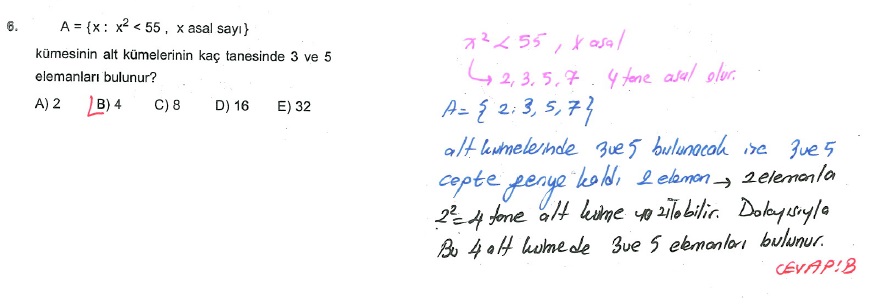 6. A = {x : x² < 55 , x asal sayı}
kümesinin alt kümelerinin kaç tanesinde 3 ve 5
elemanları bulunur?
A) 2 B) 4 C) 8 D) 16 E) 32
x² < 55 , x asal
↳ 2, 3, 5, 7 . 4 tane asal olur.
A = { 2, 3, 5, 7 }
alt kümelerinde 3 ve 5 bulunacak ise 3 ve 5
cepte geriye kaldı 2 eleman → 2 elemanla
2² = 4 tane alt küme yazılabilir. Dolayısıyla
Bu 4 alt kümede 3 ve 5 elemanları bulunur.
CEVAP: B